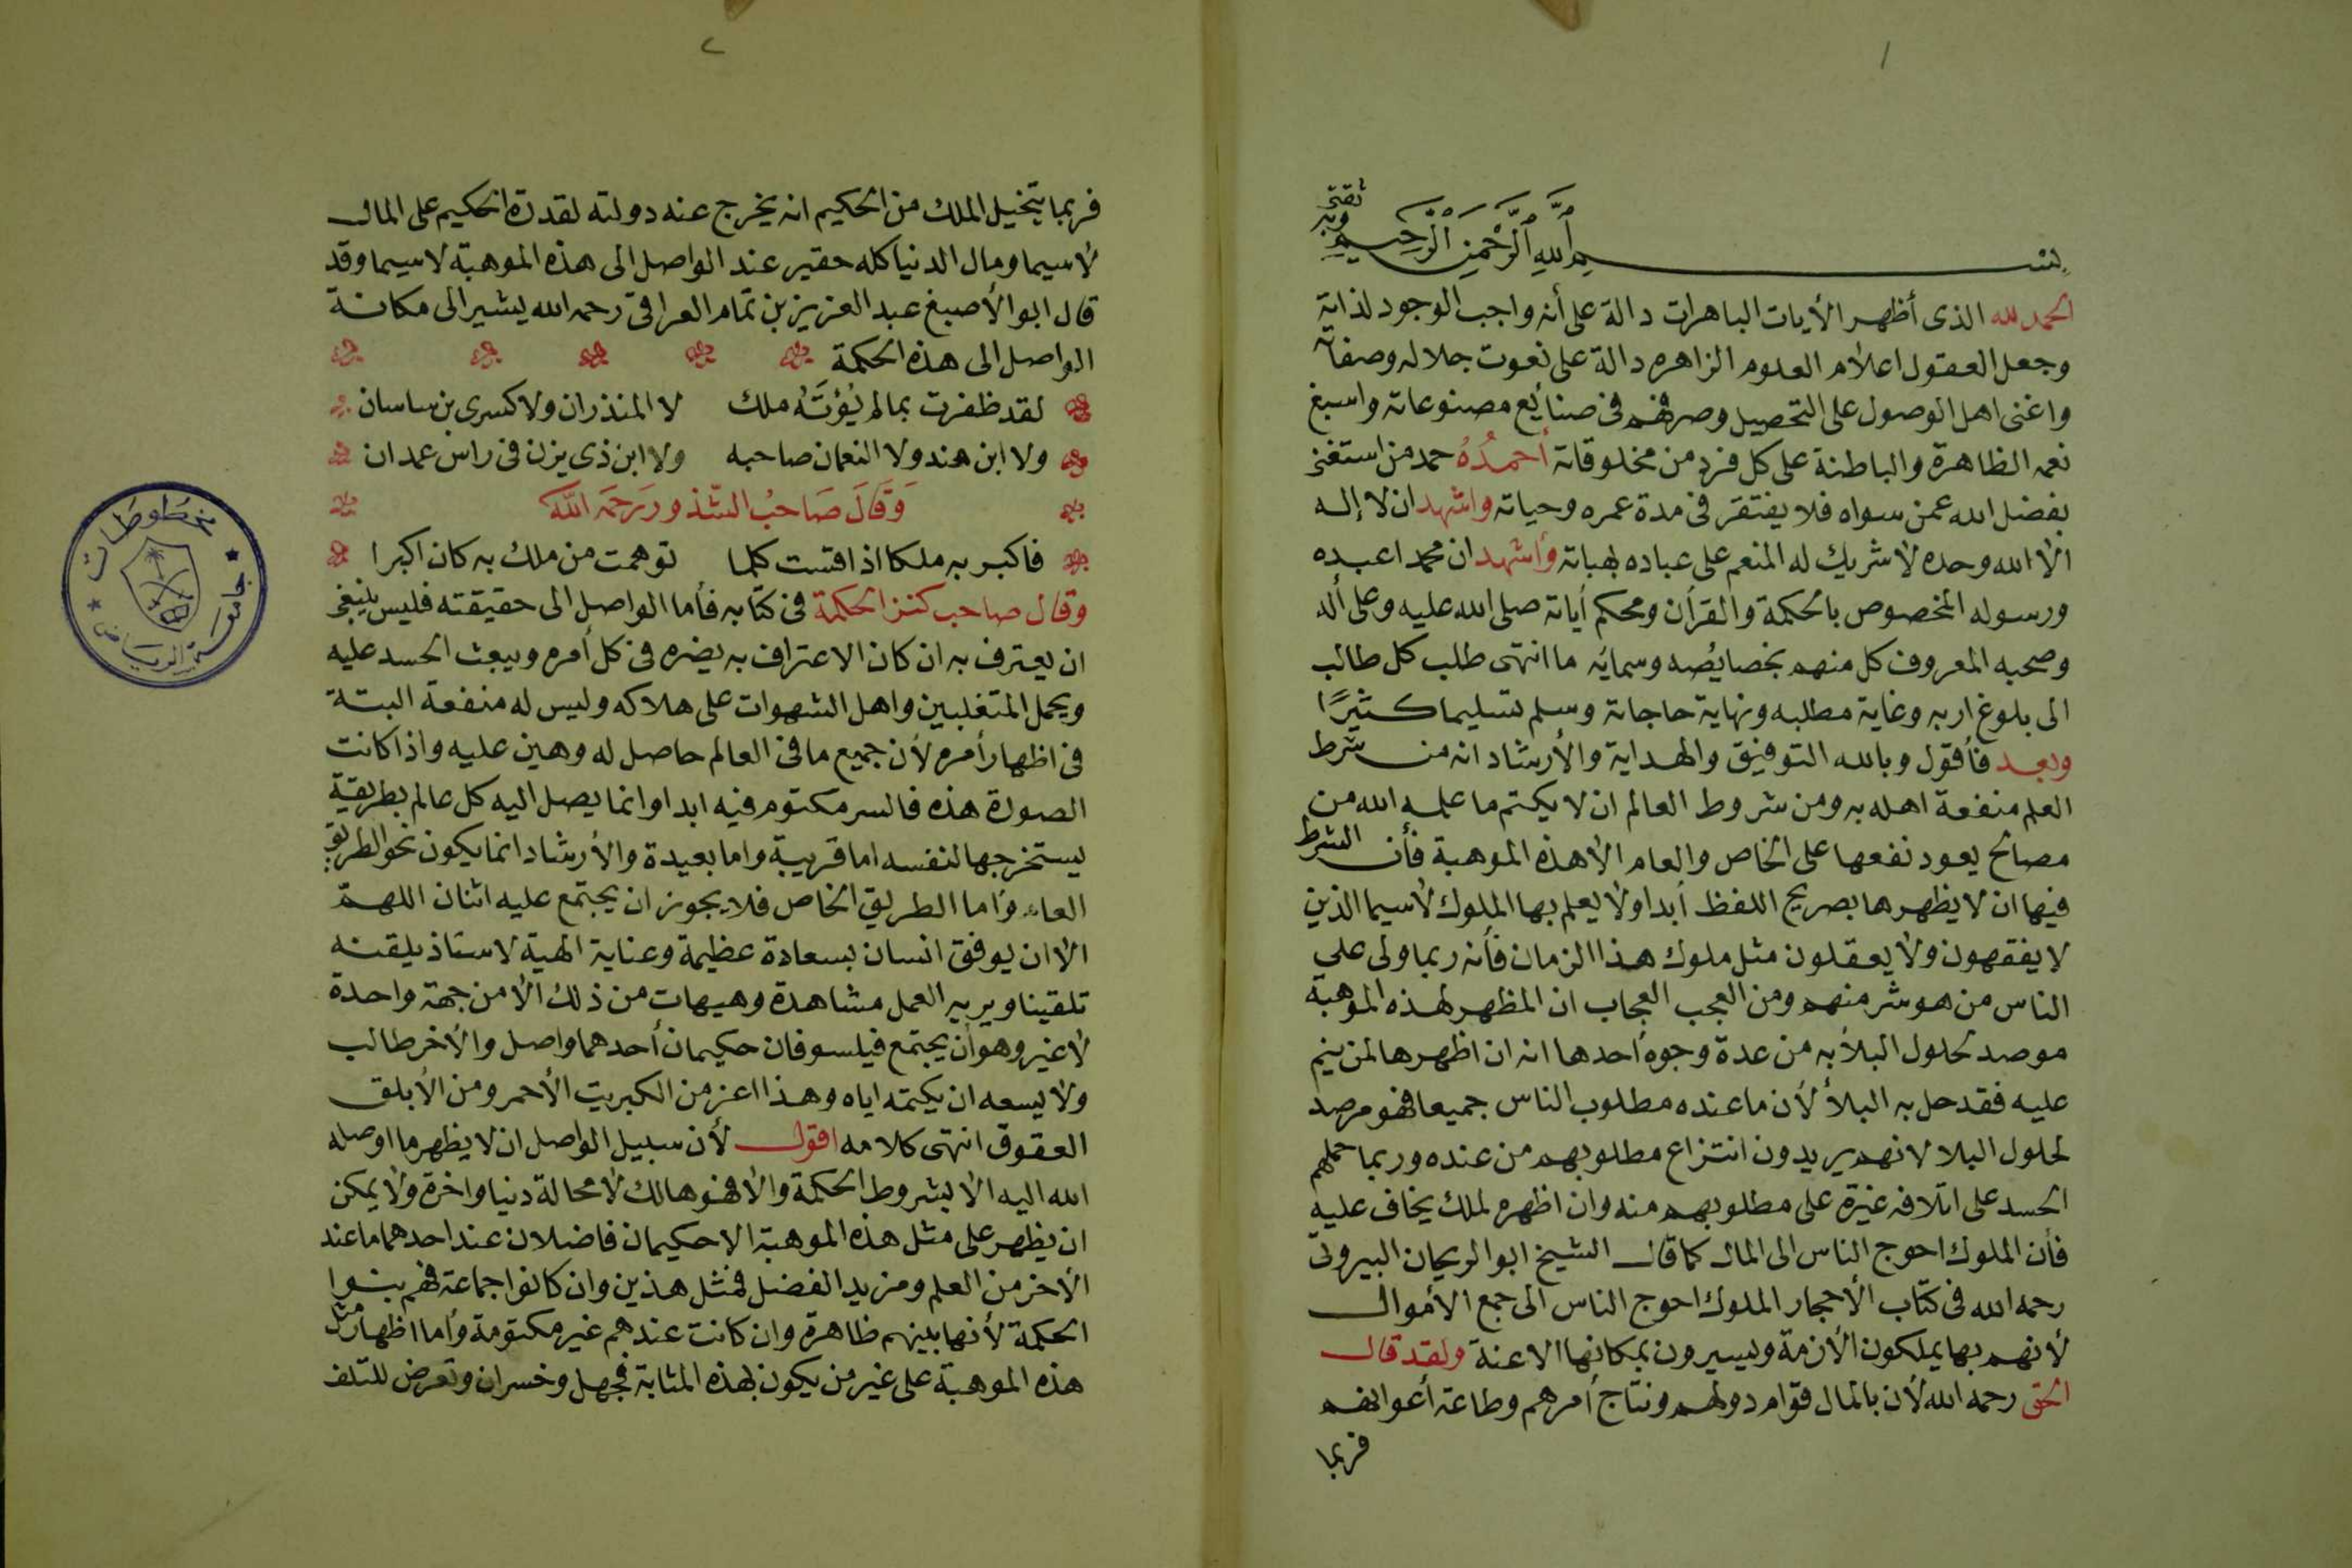 ١
وبه ثقتي
بسم الله الرحمن الرحيم
الحمد لله الذى أظهر الأيات الباهرات دالة على أنه واجب الوجود لذاته
وجعل العقول اعلام العلوم الزاهره دالة على نعوت جلاله وصفاته
واغنى اهل الوصول على التحصيل وصرفهم فى صنايع مصنوعاته واسبغ
نعمه الظاهرة والباطنة على كل فرد من مخلوقاته أحمدُهُ حمد من استغنى
بفضل الله عمن سواه فلا يفتقر فى مدة عمره وحياته واشهد ان لا إله
الا الله وحده لا شريك له المنعم على عباده بهباته وأشهد ان محمدا عبده
ورسوله المخصوص بالحكمة والقرأن ومحكم أياته صلى الله عليه وعلى أله
وصحبه المعروف كل منهم بخصايصه وسمائه ما انتهى طلب كل طالب
الى بلوغ اربه وغاية مطلبه ونهاية حاجاته وسلم تسليما كثيرًا
وبعد فأقول وبالله التوفيق والهداية والأرشاد انه من شرط
العلم منفعة اهله به ومن شروط العالم ان لا يكتم ما علمه الله من
مصالح يعود نفعها على الخاص والعام الا هذه الموهبة فأن الشرط
فيها ان لا يظهرها بصريح اللفظ أبدا ولا يعلم بها الملوك لاسيما الذين
لا يفقهون ولا يعقلون مثل ملوك هذا الزمان فأنه ربما ولى على
الناس من هو شر منهم ومن العجب العجاب ان المظهر لهذه الموهبة
موصد لحلول البلأ به من عدة وجوه أحدها انه ان اظهرها لمن ينم
عليه فقد حل به البلأ لأن ما عنده مطلوب الناس جميعا فهو مرصد
لحلول البلا لانهم يريدون انتزاع مطلوبهم من عنده وربما حملهم
الحسد على اتلافه غيرة على مطلوبهم منه وان اظهره لملك يخاف عليه
فأن الملوك احوج الناس الى المال كما قال الشيخ ابو الريحان البيرونى
رحمه الله فى كتاب الأحجار الملوك احوج الناس الى جمع الأموال
لأنهم بها يملكون الأزمة ويسيرون بمكانها الاعنة ولقد قال
الحق رحمه الله لأن بالمال قوام دولهم ونتاج أمرهم وطاعة أعوانهم
فربما
٢
فربما يتخيل الملك من الحكيم انه يخرج عنه دولته لقدرة الحكيم على المال
لاسيما ومال الدنيا كله حقير عند الواصل الى هذه الموهبة لاسيما وقد
قال ابو الأصبغ عبد العزيز بن تمام العراقى رحمه الله يشير الى مكانة
الواصل الى هذه الحكمة
لقد ظفرت بما لم يُؤتَهُ ملك لا المنذران ولا كسرى بن ساسان
ولا ابن هند ولا النعمان صاحبه ولا ابن ذى يزن فى راس عمدان
وَقَالَ صَاحبُ الشذور رَحمَه اللَّه
فاكبر به ملكا اذا قست كلما توهمت من ملك به كان اكبرا
وقال صاحب كنز الحكمة فى كتابه فأما الواصل الى حقيقته فليس ينبغى
ان يعترف به ان كان الاعتراف به يضره فى كل أمره ويبعث الحسد عليه
ويحمل المتغلبين واهل الشهوات على هلاكه وليس له منفعة البتة
فى اظهار أمره لأن جميع ما فى العالم حاصل له وهين عليه واذا كانت
الصورة هذه فالسر مكتوم فيه ابدا وانما يصل اليه كل عالم بطريقة
يستخرجها لنفسه اما قريبة واما بعيدة والأرشاد انما يكون نحو الطريق
العام وأما الطريق الخاص فلا يجوز ان يجتمع عليه اثنان اللهمّ
الا ان يوفق انسان بسعادة عظيمة وعناية الهية لاستاذ يلقنه
تلقينا ويريه العمل مشاهدة وهيهات من ذلك الا من جهة واحدة
لا غير وهو أن يجتمع فيلسوفان حكيمان أحدهما واصل والأخر طالب
ولا يسعه ان يكتمه اياه وهذا اعز من الكبريت الأحمر ومن الأبلق
العقوق انتهى كلامه اقول لأن سبيل الواصل ان لا يظهر ما اوصله
الله اليه الا بشروط الحكمة والا فهو هالك لا محالة دنيا واخرة ولا يمكن
ان يظهر على مثل هذه الموهبة الا حكيمان فاضلان عند احدهما ما عند
الأخر من العلم ومزيد الفضل فمثل هذين وان كانوا جماعة فهم بنوا
الحكمة لأنها بينهم ظاهرة وان كانت عندهم غير مكتومة وأما اظهار مثل
هذه الموهبة على غير من يكون بهذه المثابة فجهل وخسران وتعرض للتلف
مخطوطات
جامعة الرياض